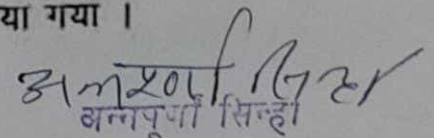 या गया ।
अन्नपूर्णा सिन्हा
अन्नपूर्णा सिन्हा